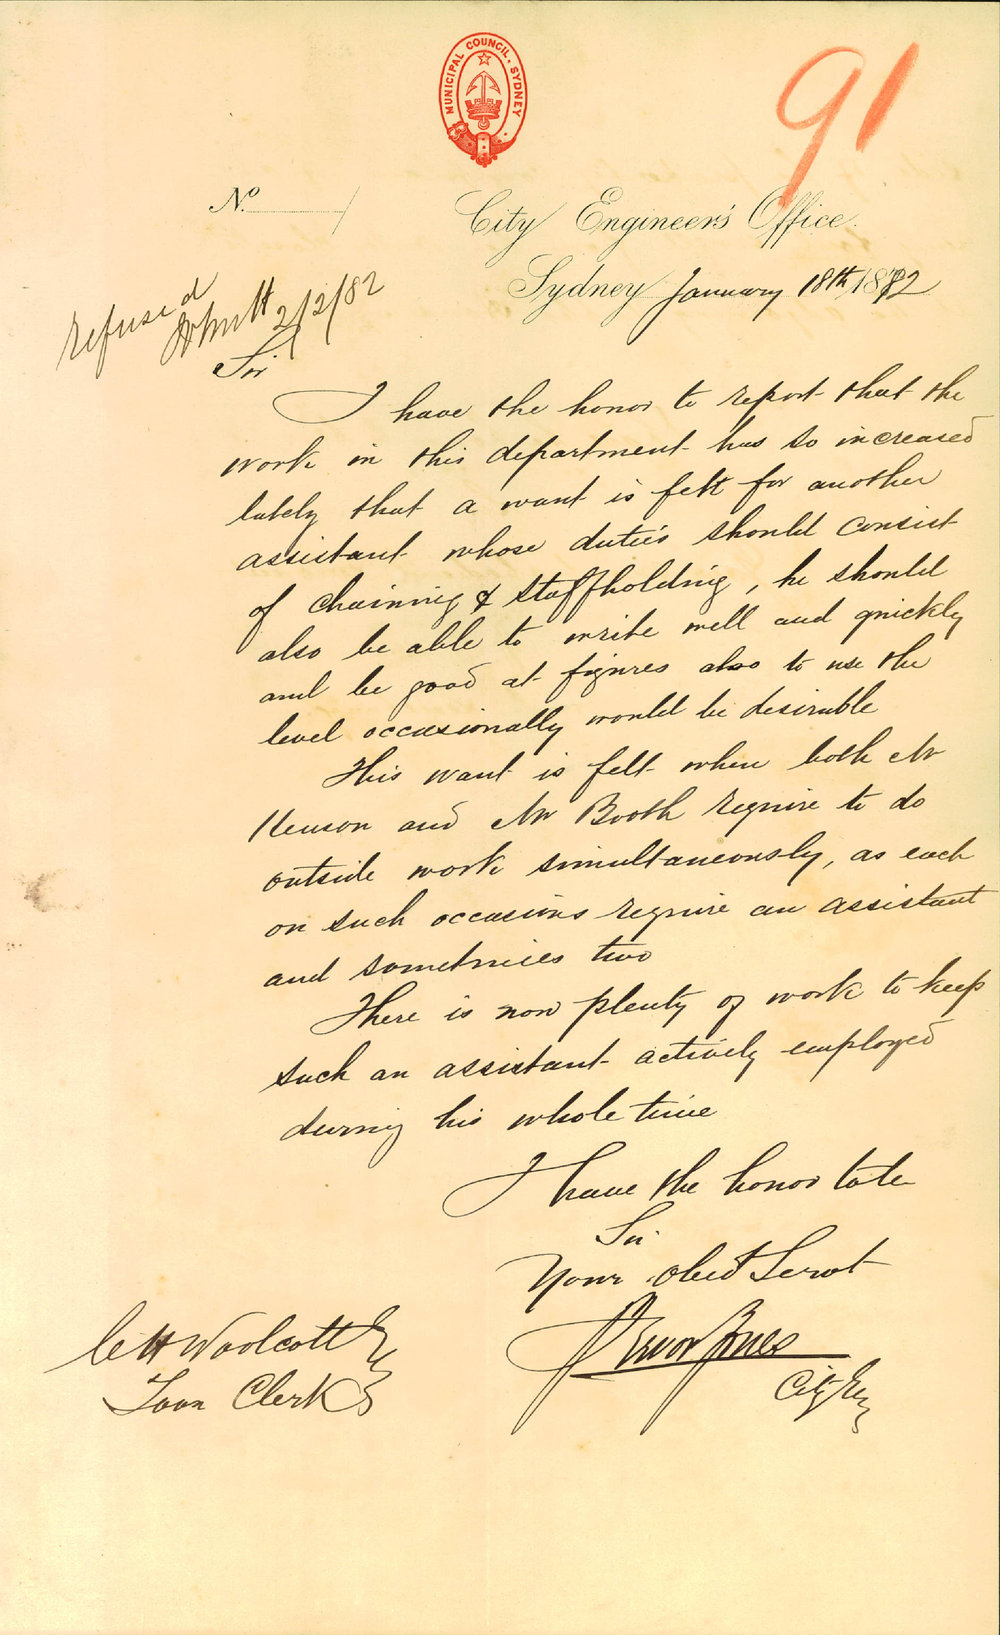 MUNICIPAL COUNCIL. SYDNEY
91
No.
City Engineer's Office.
Sydney January 18th 1882
refused
2/2/82
Sir
I have the honor to report that the
work in this department has so increased
lately that a want is felt for another
assistant whose duties should consist
of chaining & staffholding, he should
also be able to write well and quickly
and be good at figures also to use the
level occasionally would be desirable
This want is felt when both Mr
and Mr Booth require to do
outside work simultaneously, as each
on such occasions require an assistant
and sometimes two
There is now plenty of work to keep
such an assistant actively employed
during his whole time
I have the honor to be
Sir
Your obedt Servt
Trevor Jones
City Eng
C H Woolcott Esq
Town Clerk